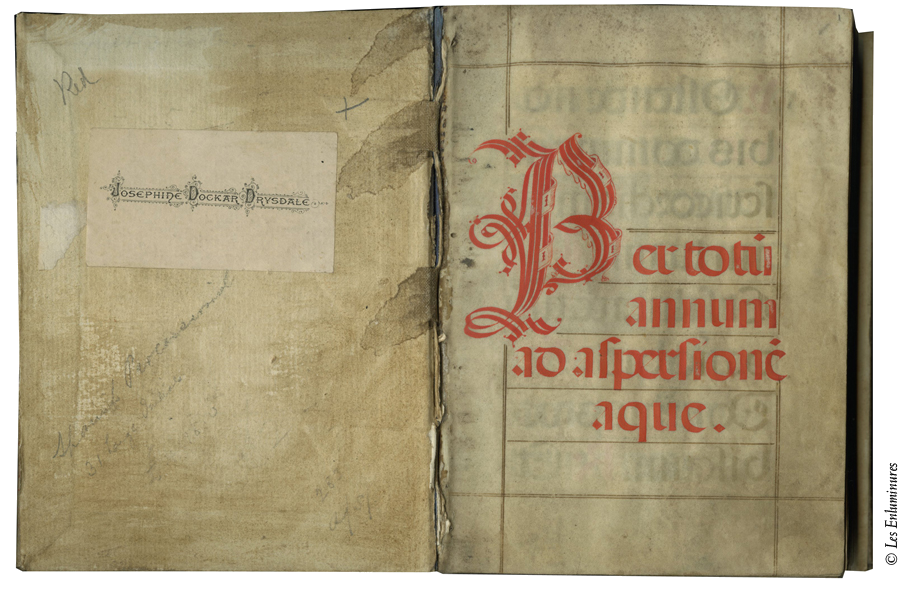 Red
JOSEPHINE DOCKAR DRYSDALE
Processional
Per totu
annum
ad aspersionē
aque.
© Les Enluminures